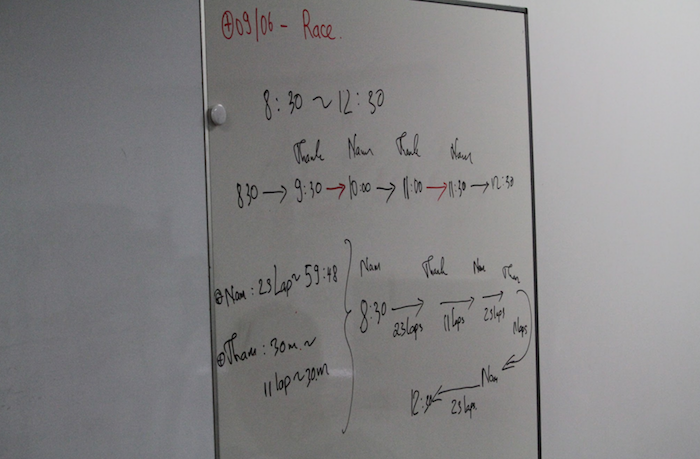 ⊕09/06 - Race.
8:30 ~ 12:30
Thanh Nam Thanh Nam
830 → 9:30 → 10:00 → 11:00 → 11:30 → 12:30
⊕ Nam : 23 Lap ~ 59:48
⊕ Tham : 30m ~
11 lap ~ 30m
Nam Thanh Nam
8:30 → → →
23 laps 11 laps 23 laps 11 laps
Nam
12:30 ←
23 laps